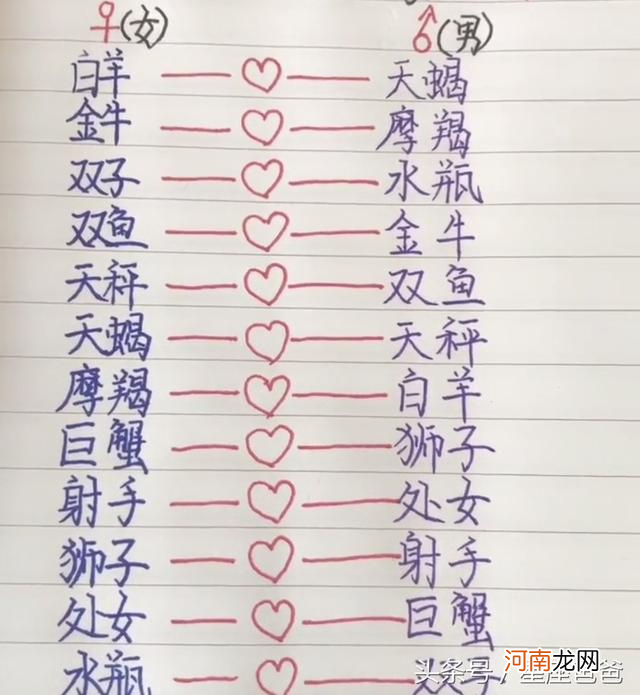 ♀(女) ♂(男)
白羊 天蝎
金牛 摩羯
双子 水瓶
双鱼 金牛
天秤 双鱼
天蝎 天秤
摩羯 白羊
巨蟹 狮子
射手 处女
狮子 射手
处女 巨蟹
水瓶 双子
头条号 / 星座爸爸
河南龙网